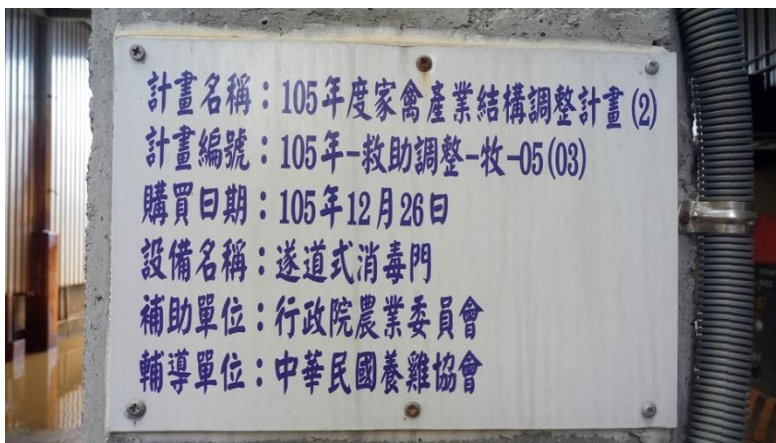 計畫名稱：105年度家禽產業結構調整計畫(2)
計畫編號：105年-救助調整-牧-05(03)
購買日期：105年12月26日
設備名稱：遂道式消毒門
補助單位：行政院農業委員會
輔導單位：中華民國養雞協會